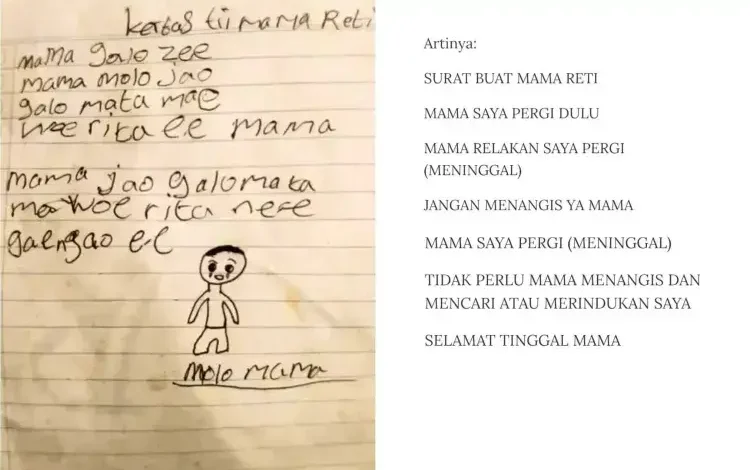 kertas tii mama Reti
mama galo zee
mama molo jao
galo mata mae
woe rita ee mama
mama jao galo mata
mae woe rita nee
gae ngao ee
molo mama
Artinya:
SURAT BUAT MAMA RETI
MAMA SAYA PERGI DULU
MAMA RELAKAN SAYA PERGI
(MENINGGAL)
JANGAN MENANGIS YA MAMA
MAMA SAYA PERGI (MENINGGAL)
TIDAK PERLU MAMA MENANGIS DAN
MENCARI ATAU MERINDUKAN SAYA
SELAMAT TINGGAL MAMA